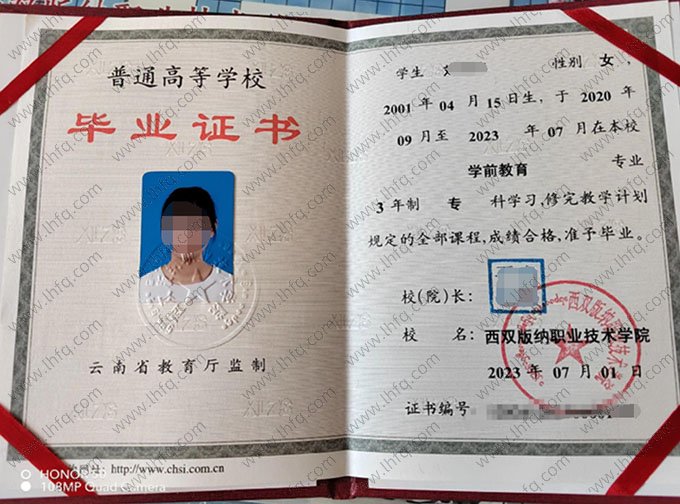 普通高等学校
毕业证书
云南省教育厅监制
网址：http://www.chsi.com.cn
HONOR
108MP Quad Camera
学生 性别 女，
2001 年 04 月 15 日生，于 2020 年
09 月至 2023 年 07 月在本校
学前教育 专业
3 年制 专 科学习，修完教学计划
规定的全部课程，成绩合格，准予毕业。
校（院）长：
校 名：西双版纳职业技术学院
2023 年 07 月 01 日
证书编号
西双版纳职业技术学院
www.lhfq.com